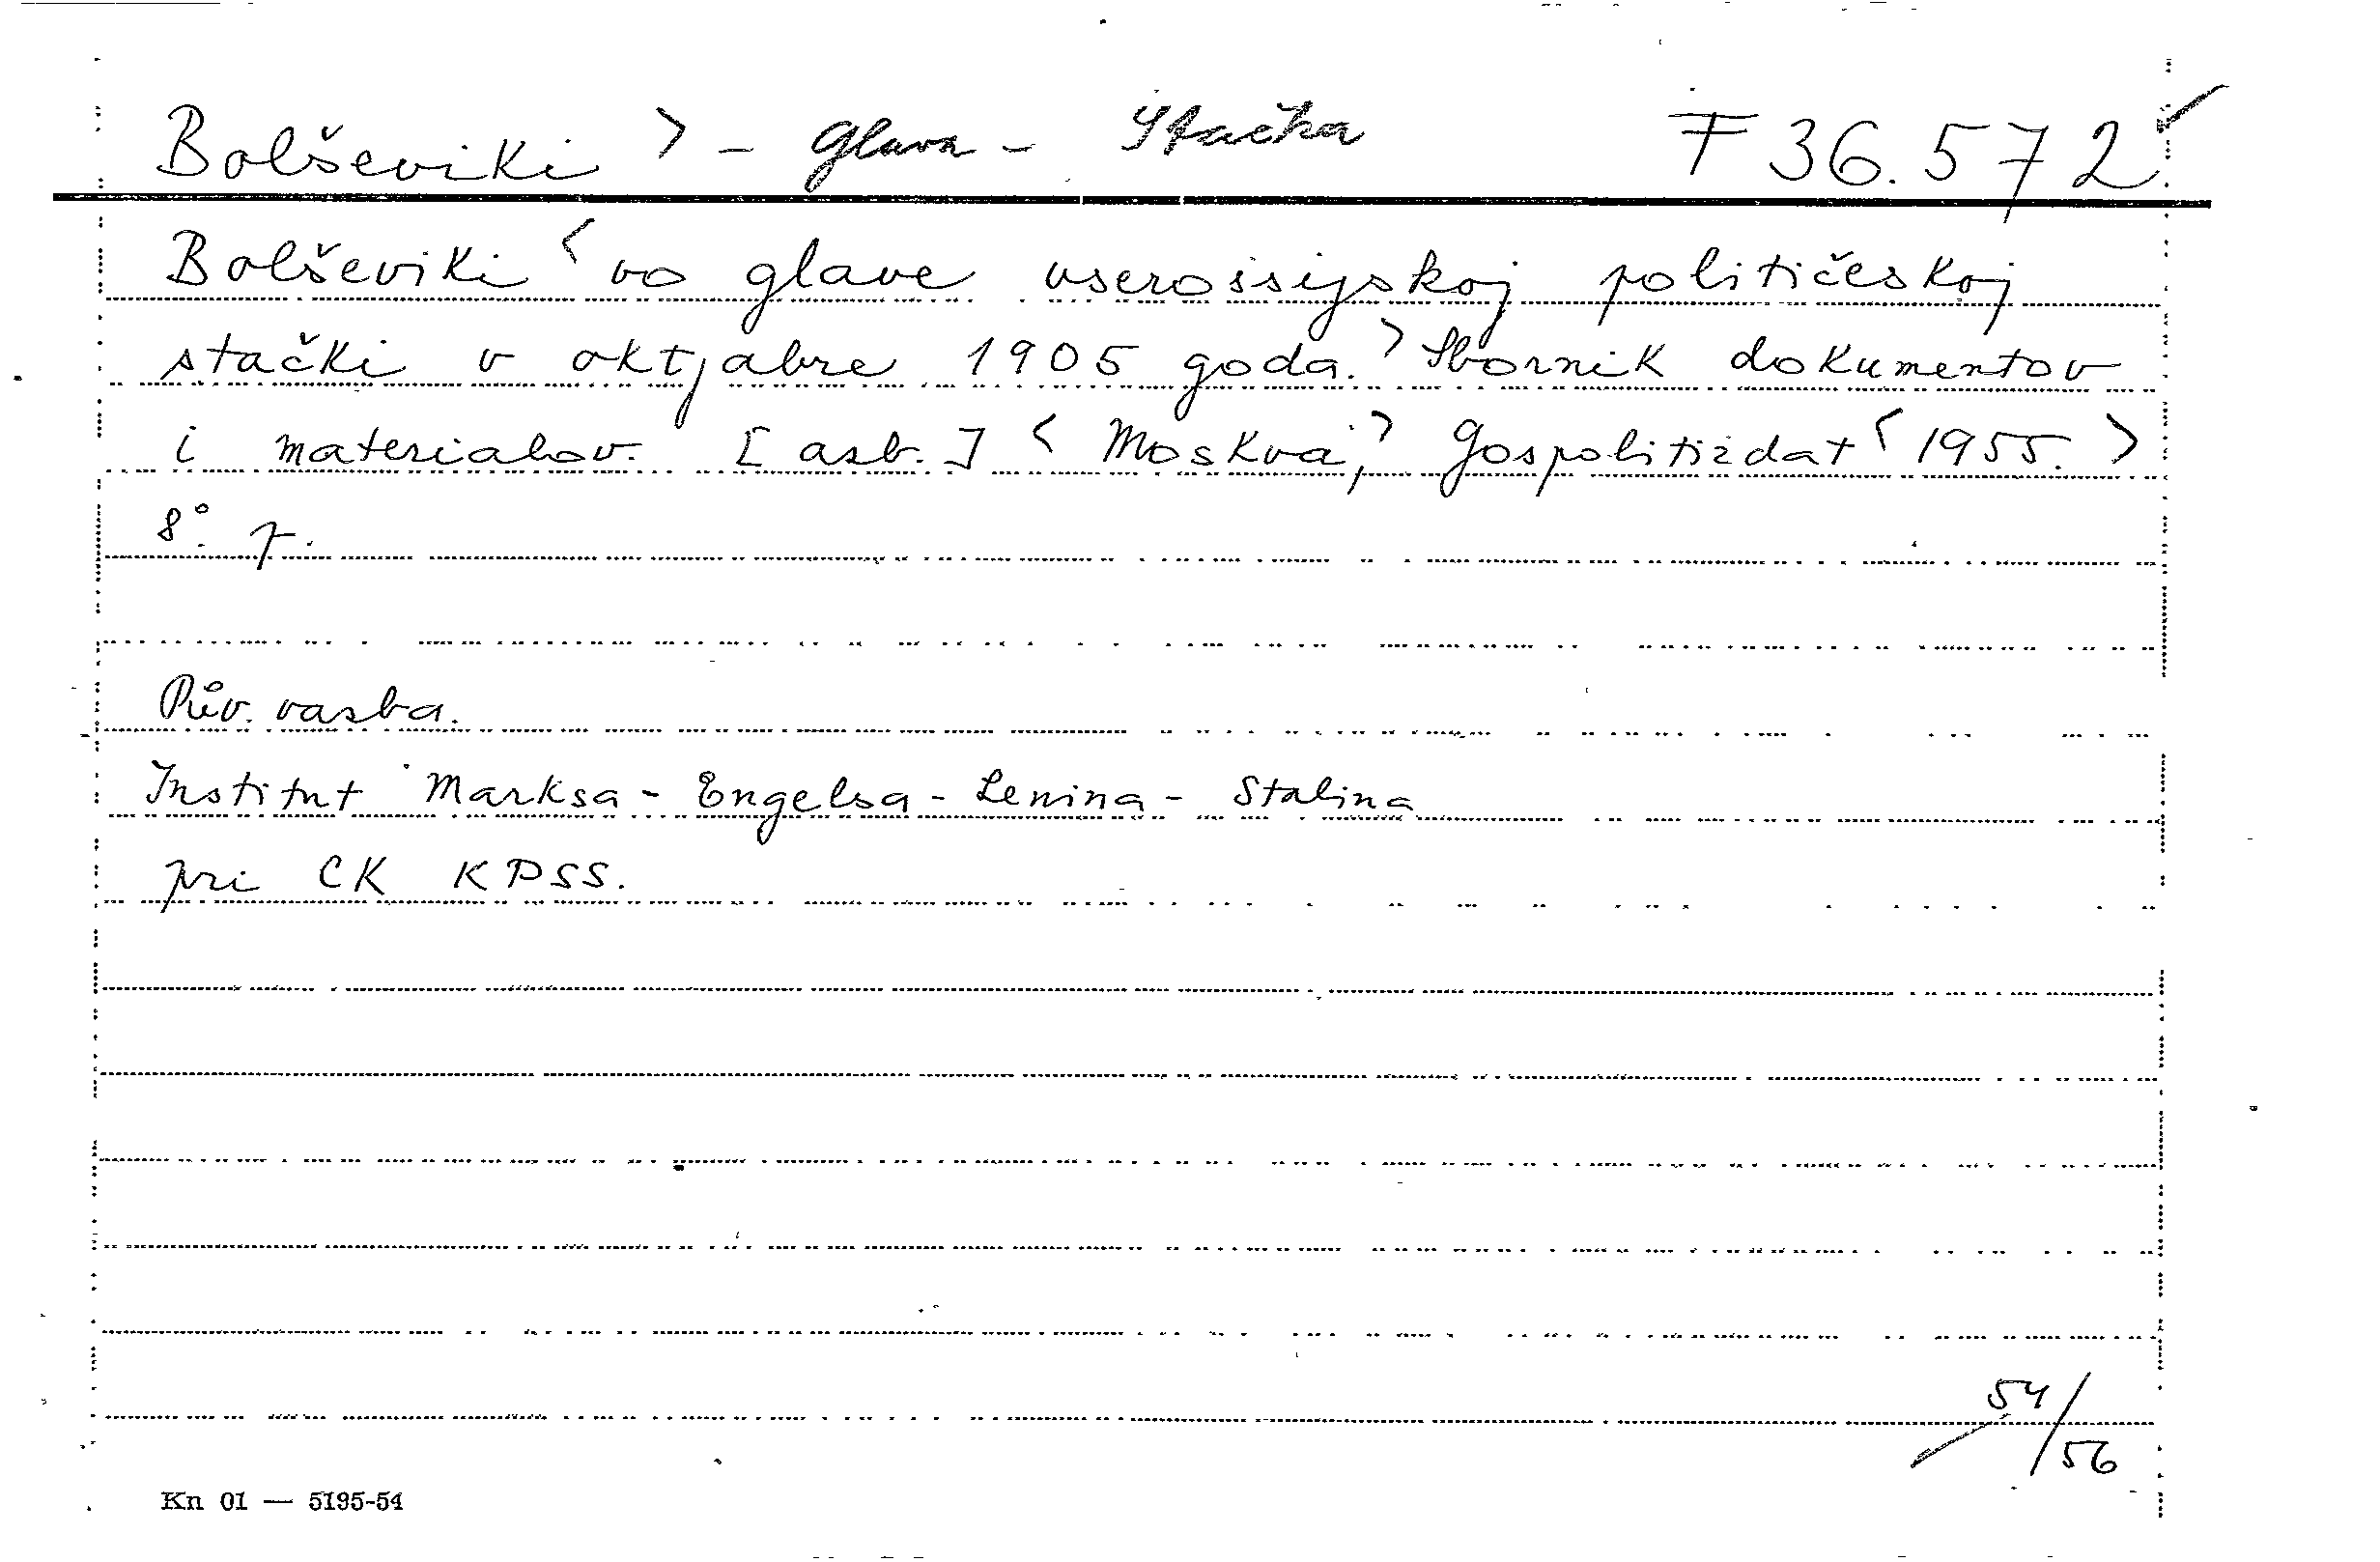 Bolševiki > - Glava - Stačka F 36.572
Bolševiki < vo glave vserossijskoj političeskoj
stački v oktjabre 1905 goda. > Sbornik dokumentov
i materialov. [asb.] < Moskva, > Gospolitizdat < 1955. >
8°. p.
Pův. vazba.
Institut Marksa - Engelsa - Lenina - Stalina
pri CK KPSS.
54/56
Kn 01 — 5195-54